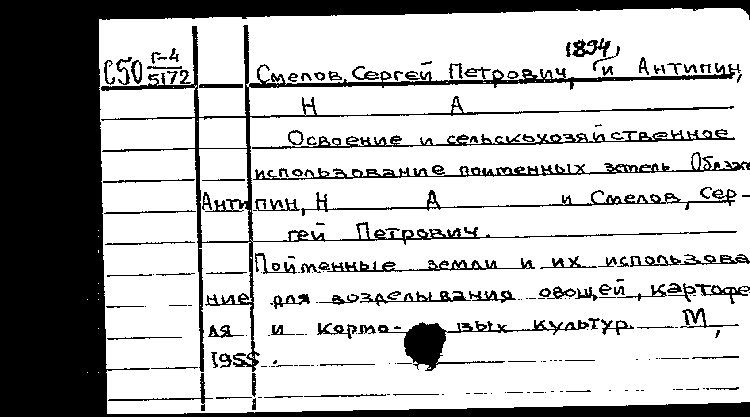 С50 Г-4/5172
Смелов, Сергей Петрович, 1894, и Антипин,
Н А
Освоение и сельскохозяйственное
использование пойменных земель
Антипин, Н А и Смелов, Сер-
гей Петрович.
Пойменные земли и их использова
ние для возделывания овощей, картофе
ля и кормо- вых культур. М,
1955.